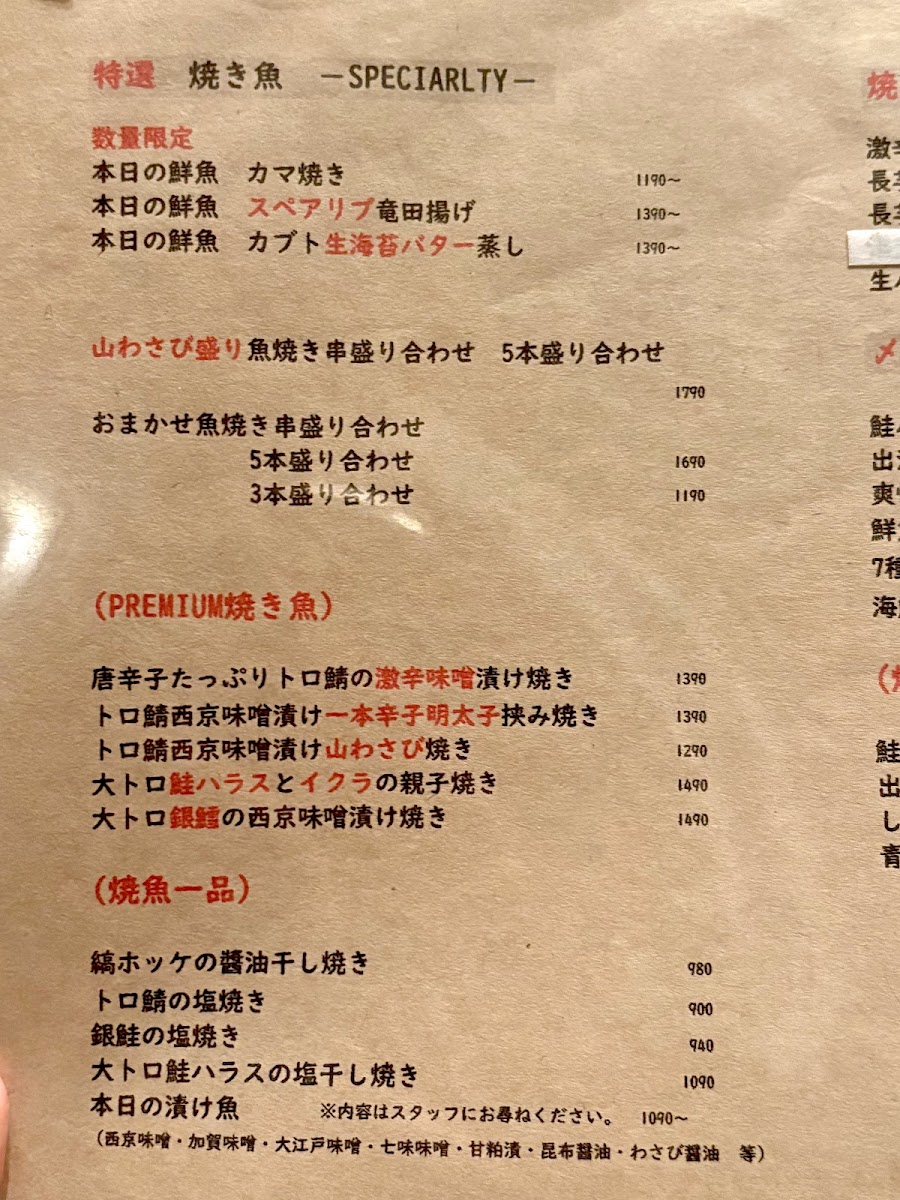 特選 焼き魚 －SPECIARLTY－
数量限定
本日の鮮魚 カマ焼き 1190～
本日の鮮魚 スペアリブ竜田揚げ 1390～
本日の鮮魚 カブト生海苔バター蒸し 1390～
山わさび盛り魚焼き串盛り合わせ 5本盛り合わせ
1790
おまかせ魚焼き串盛り合わせ
5本盛り合わせ 1690
3本盛り合わせ 1190
(PREMIUM焼き魚)
唐辛子たっぷりトロ鯖の激辛味噌漬け焼き 1390
トロ鯖西京味噌漬け一本辛子明太子挟み焼き 1390
トロ鯖西京味噌漬け山わさび焼き 1290
大トロ鮭ハラスとイクラの親子焼き 1490
大トロ銀鱈の西京味噌漬け焼き 1490
(焼魚一品)
縞ホッケの醬油干し焼き 980
トロ鯖の塩焼き 900
銀鮭の塩焼き 940
大トロ鮭ハラスの塩干し焼き 1090
本日の漬け魚 ※内容はスタッフにお尋ねください。 1090～
(西京味噌・加賀味噌・大江戸味噌・七味味噌・甘粕漬・昆布醤油・わさび醤油 等)
焼
激辛
長芋
長芋
生ハ
〆
鮭
出
爽
鮮
7種
海
鮭
出
し
青